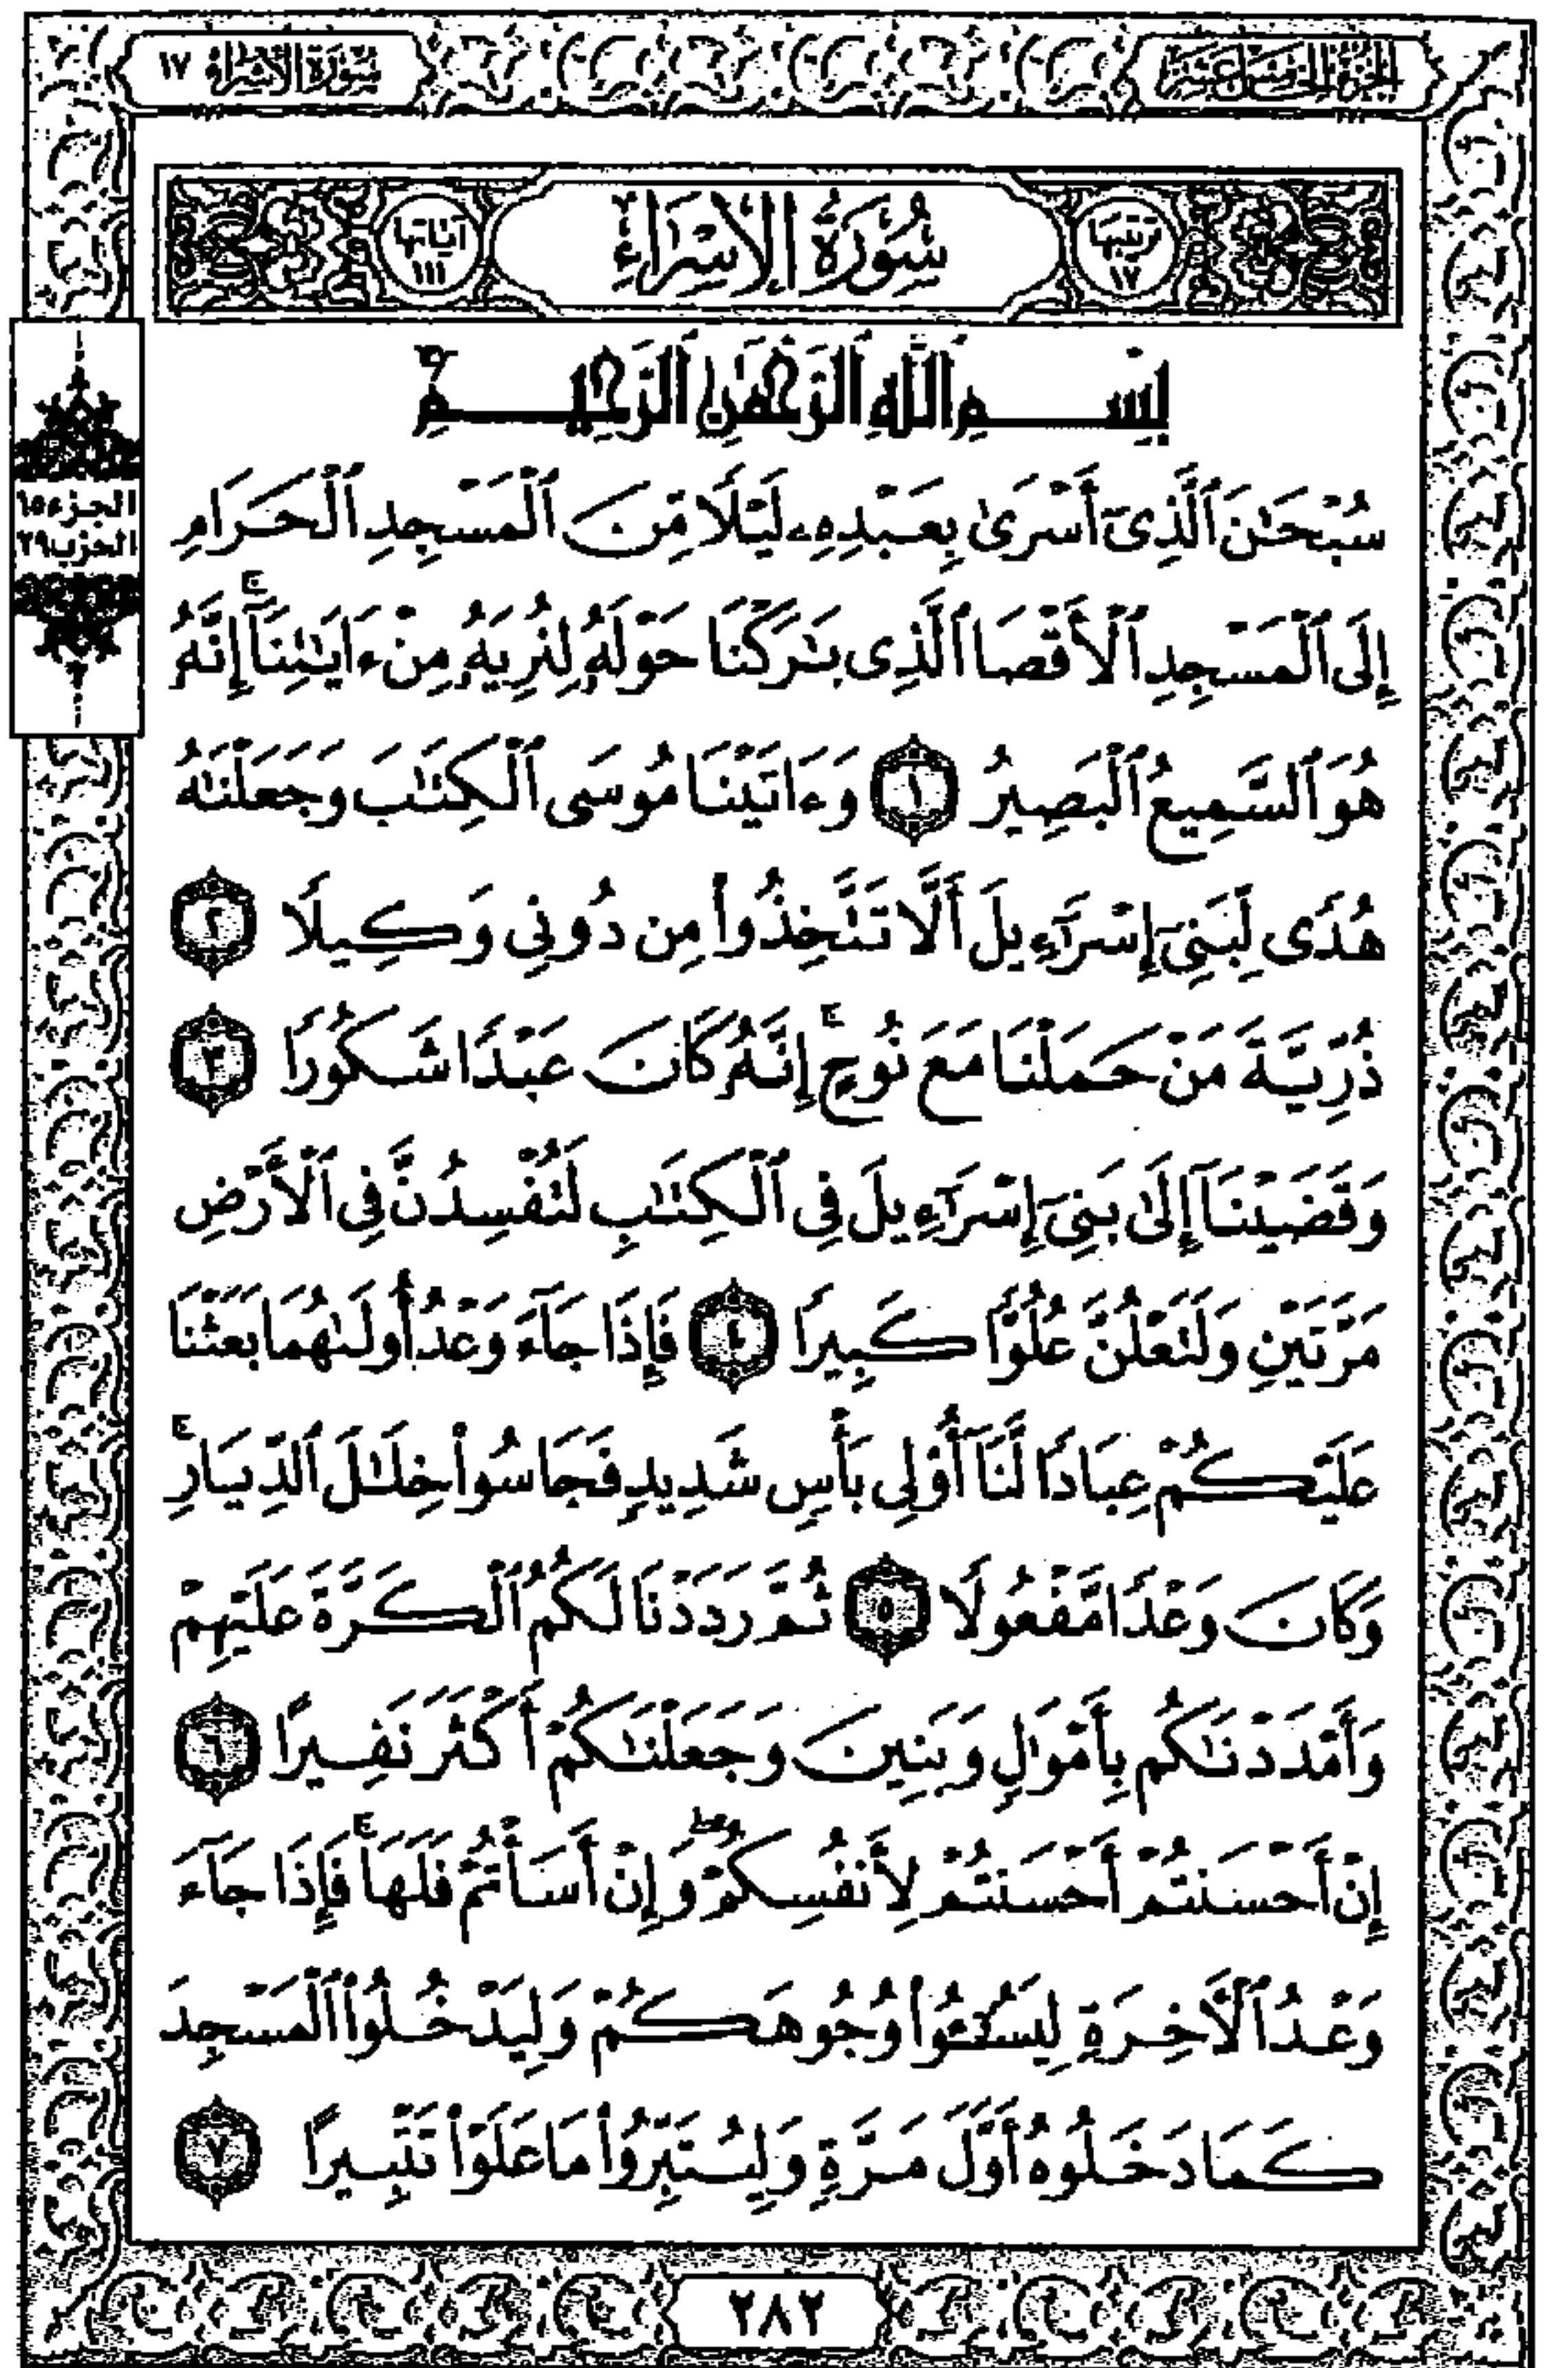 الجزء الخامس عشر
سورة الإسراء ١٧
ترتيبها ١٧
سُورَةُ الإِسْرَاءِ
آياتها ١١١
بِسْمِ ٱللَّهِ ٱلرَّحْمَٰنِ ٱلرَّحِيمِ
الجزء ١٥
الحزب ٢٩
سُبْحَٰنَ ٱلَّذِىٓ أَسْرَىٰ بِعَبْدِهِۦ لَيْلًا مِّنَ ٱلْمَسْجِدِ ٱلْحَرَامِ
إِلَى ٱلْمَسْجِدِ ٱلْأَقْصَا ٱلَّذِى بَٰرَكْنَا حَوْلَهُۥ لِنُرِيَهُۥ مِنْ ءَايَٰتِنَآ ۚ إِنَّهُۥ
هُوَ ٱلسَّمِيعُ ٱلْبَصِيرُ ١ وَءَاتَيْنَا مُوسَى ٱلْكِتَٰبَ وَجَعَلْنَٰهُ
هُدًى لِّبَنِىٓ إِسْرَٰٓءِيلَ أَلَّا تَتَّخِذُوا۟ مِن دُونِى وَكِيلًا ٢
ذُرِّيَّةَ مَنْ حَمَلْنَا مَعَ نُوحٍ ۚ إِنَّهُۥ كَانَ عَبْدًا شَكُورًا ٣
وَقَضَيْنَآ إِلَىٰ بَنِىٓ إِسْرَٰٓءِيلَ فِى ٱلْكِتَٰبِ لَتُفْسِدُنَّ فِى ٱلْأَرْضِ
مَرَّتَيْنِ وَلَتَعْلُنَّ عُلُوًّا كَبِيرًا ٤ فَإِذَا جَآءَ وَعْدُ أُولَىٰهُمَا بَعَثْنَا
عَلَيْكُمْ عِبَادًا لَّنَآ أُو۟لِى بَأْسٍ شَدِيدٍ فَجَاسُوا۟ خِلَٰلَ ٱلدِّيَارِ ۚ
وَكَانَ وَعْدًا مَّفْعُولًا ٥ ثُمَّ رَدَدْنَا لَكُمُ ٱلْكَرَّةَ عَلَيْهِمْ
وَأَمْدَدْنَٰكُم بِأَمْوَٰلٍ وَبَنِينَ وَجَعَلْنَٰكُمْ أَكْثَرَ نَفِيرًا ٦
إِنْ أَحْسَنتُمْ أَحْسَنتُمْ لِأَنفُسِكُمْ ۖ وَإِنْ أَسَأْتُمْ فَلَهَا ۚ فَإِذَا جَآءَ
وَعْدُ ٱلْءَاخِرَةِ لِيَسُـۥٓـُٔوا۟ وُجُوهَكُمْ وَلِيَدْخُلُوا۟ ٱلْمَسْجِدَ
كَمَا دَخَلُوهُ أَوَّلَ مَرَّةٍ وَلِيُتَبِّرُوا۟ مَا عَلَوْا۟ تَتْبِيرًا ٧
٢٨٢